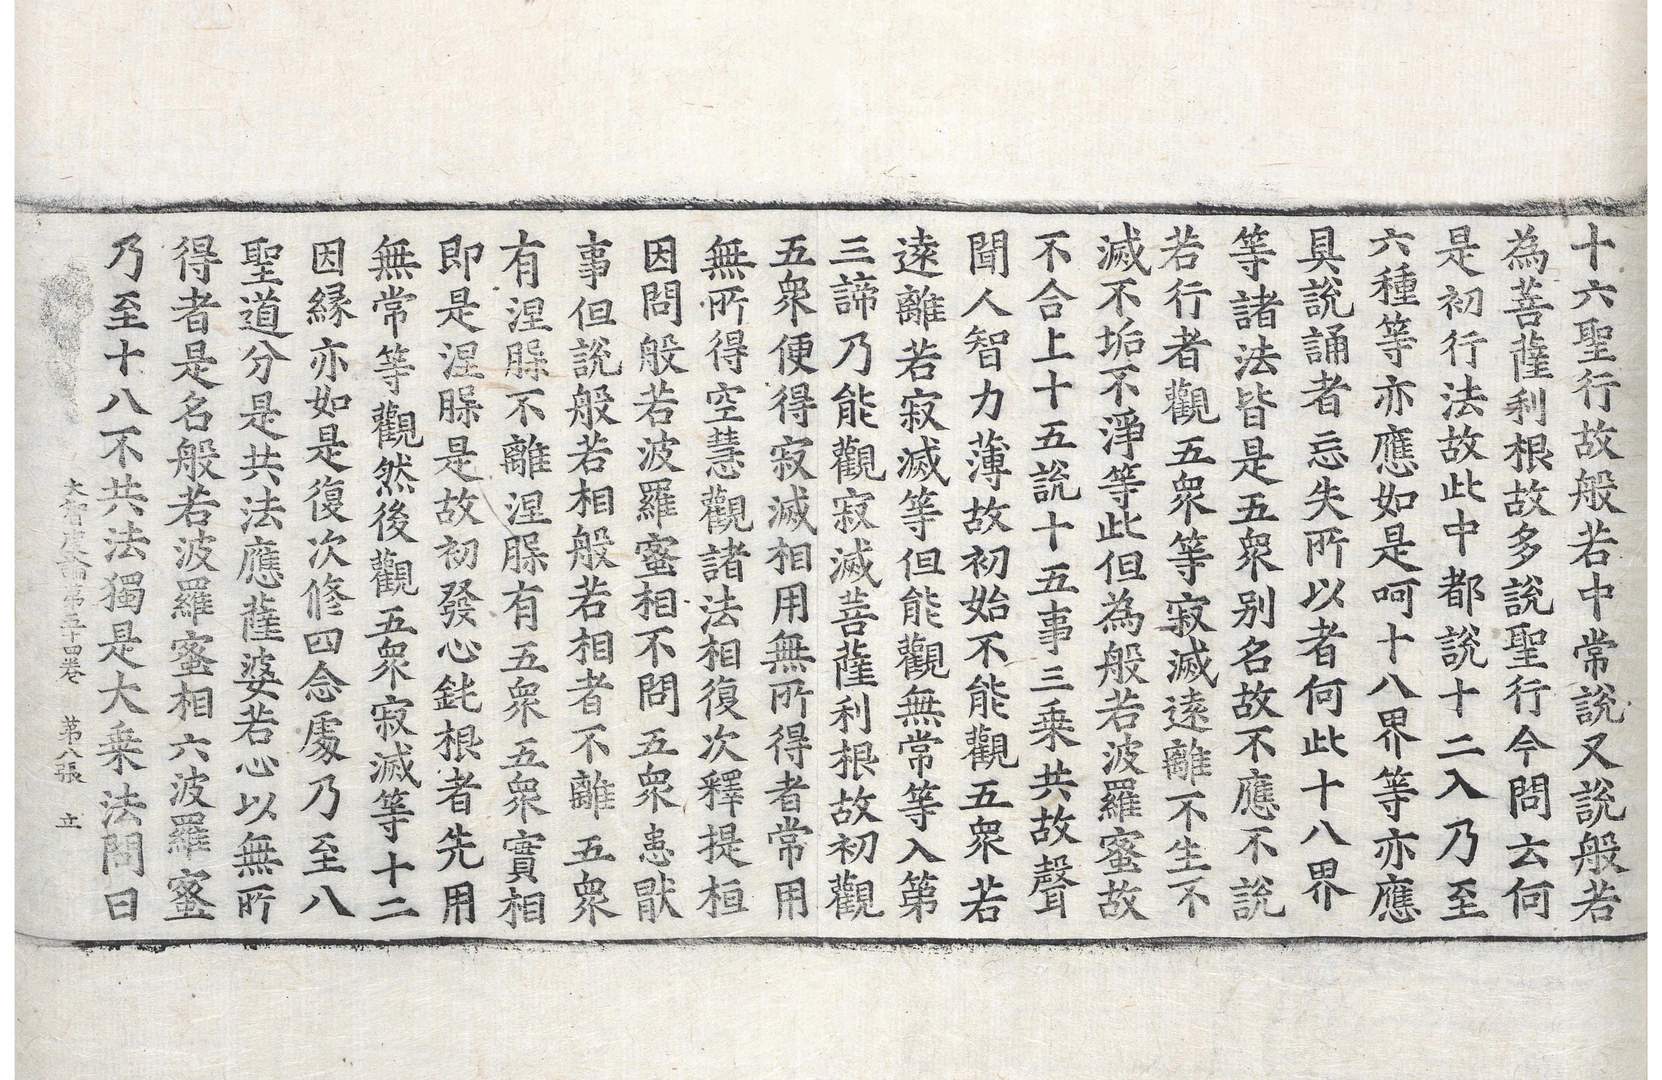 十六聖行故般若中常說又說般若
為菩薩利根故多說聖行今問云何
是初行法故此中都說十二入乃至
六種等亦應如是呵十八界等亦應
具說誦者忘失所以者何此十八界
等諸法皆是五衆别名故不應不說
若行者觀五衆等寂滅遠離不生不
滅不垢不淨等此但為般若波羅蜜故
不合上十五說十五事三乗共故聲
聞人智力薄故初始不能觀五衆若
遠離若寂滅等但能觀無常等入第
三諦乃能觀寂滅菩薩利根故初觀
五衆便得寂滅相用無所得者常用
無所得空慧觀諸法相復次釋提桓
因問般若波羅蜜相不問五衆患猒
事但說般若相般若相者不離五衆
有涅槃不離涅槃有五衆五衆實相
即是涅槃是故初發心鈍根者先用
無常等觀然後觀五衆寂滅等十二
因緣亦如是復次修四念處乃至八
聖道分是共法應薩婆若心以無所
得者是名般若波羅蜜相六波羅蜜
乃至十八不共法獨是大乗法問曰
大智度論第五十四卷 第八張 立